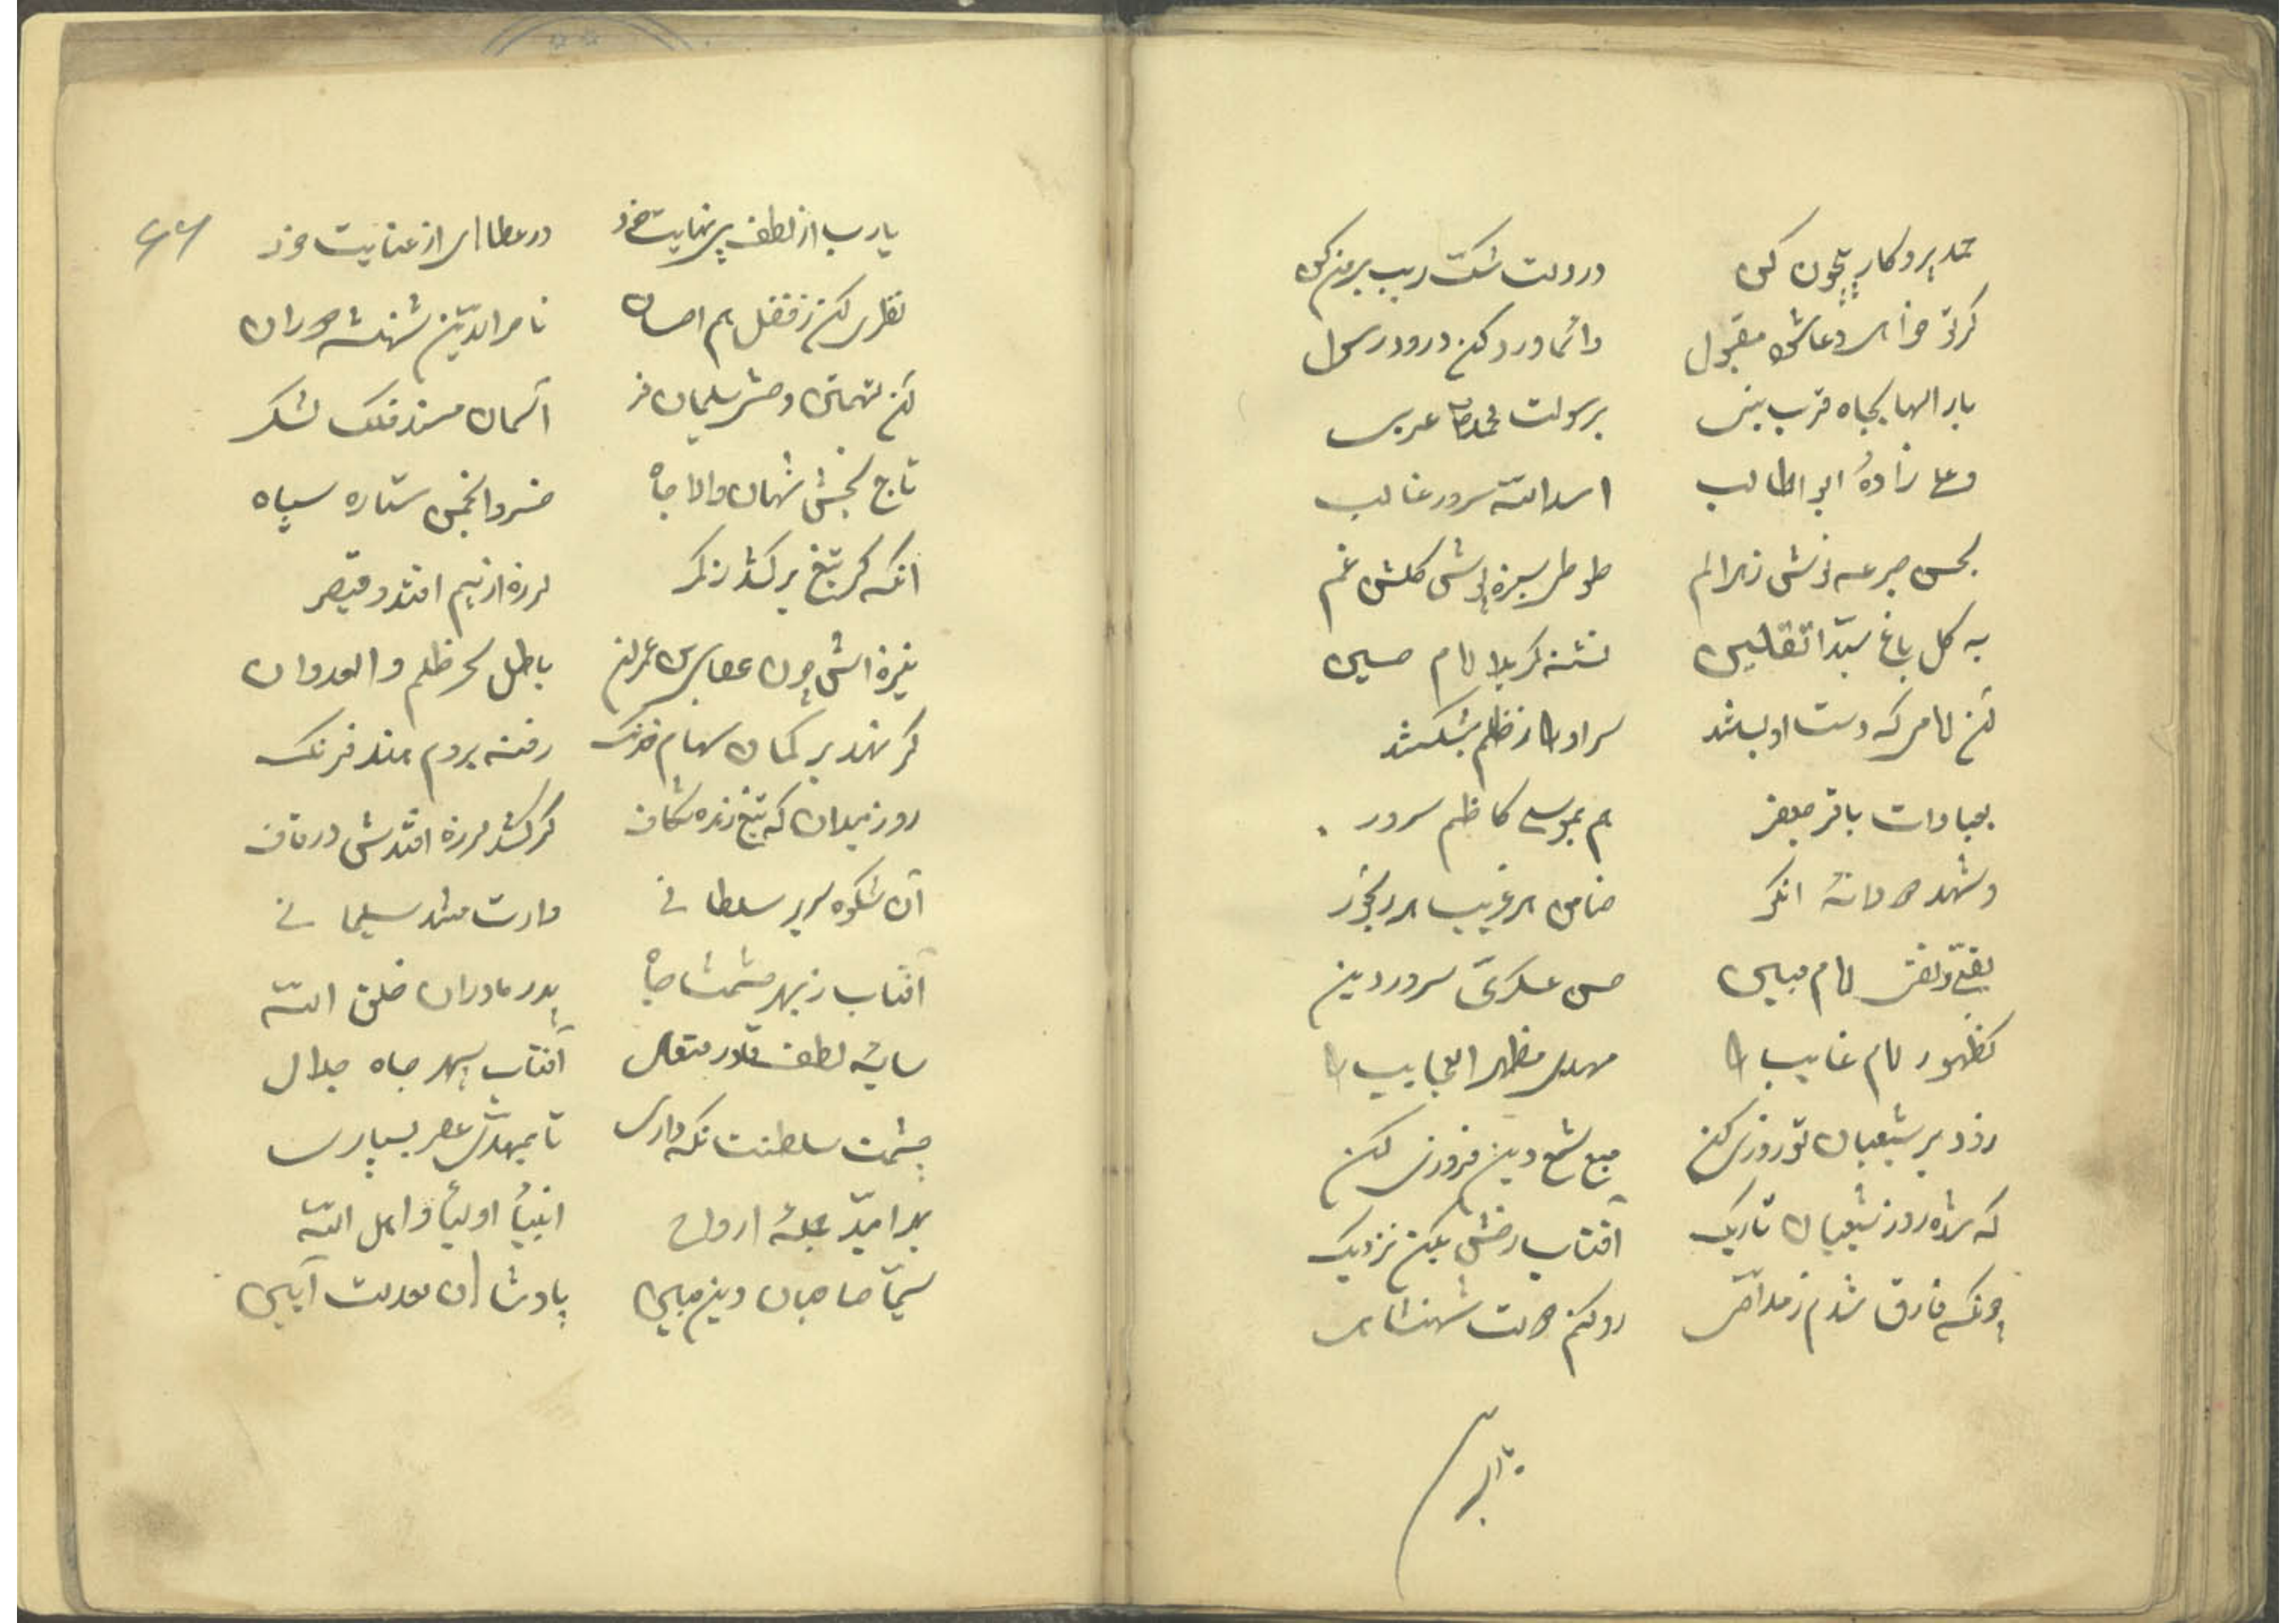 حمد پروکار بیچون کن در دلت شکّ ریب بیرون کن
کرتو خواهی دعاش مقبول دائما ورد کن درود رسول
بار الها بجاه قرب نبی برسولت محمد عربی
وعلی زادهٔ ابو الطالب اسد اللّه سرور غالب
بحسن جرعه نوش زهر الم طوطی سبزه پوش گلشن غم
به گل باغ سیّد الثقلین تشنه کربلا امام حسین
آن امامی که دست او بستند سر او را ز ظلم بشکستند
بعبادات باقر جعفر هم بموسی کاظم سرور
ضامن هر غریب هر رنجور
بتقی و نقی امام مبین حسن عسکری سرور دین
بظهور امام غایب را مهدی مظهر العجایب را
زود بر شیعیان تو روزی کن صبح شمع دین فروزی کن
که شده روز شیعیان تاریک آفتاب رخش بکن نزدیک
چونکه فارق شدم ز مداحی رو کنم مدحت شهنشاهی
یا رب از لطف بی‌نهایت خود در عطاهای از عنایت خود
نظری کن ز فضل هم احسان ناصر الدّین شهنشه دوران
آن تهمتن وحش سلیمان فر آسمان مسند فلک لشکر
تاج بخش شهان والا جاه خسرو انجمن ستاره سپاه
آنکه گر تیغ برکشد ز کمر لرزه از بیم افتد و قیصر
نیزه اش چون عصای بن عمران باطل سحر ظلم والعدوان
گر نهد بر کمان سهام خدنگ رفته بروم هند فرنگ
روز میدان که تیغ زده شکاف گر کشد لرزه افتدش در قاف
آن شکوه سریر سلطانی وارث مسند سلیمانی
آفتاب سپهر حشمت جاه پدر مادران خلق اللّه
سایهٔ لطف قادر متعال آفتاب سپهر جاه جلال
حشمت سلطنت نکه داری تا بمهدی عصر بسپاری
انبیأ اولیأ و اهل اللّه
سیّما صاحبان دین مبین پادشاهان معدلت آیین
۶۶